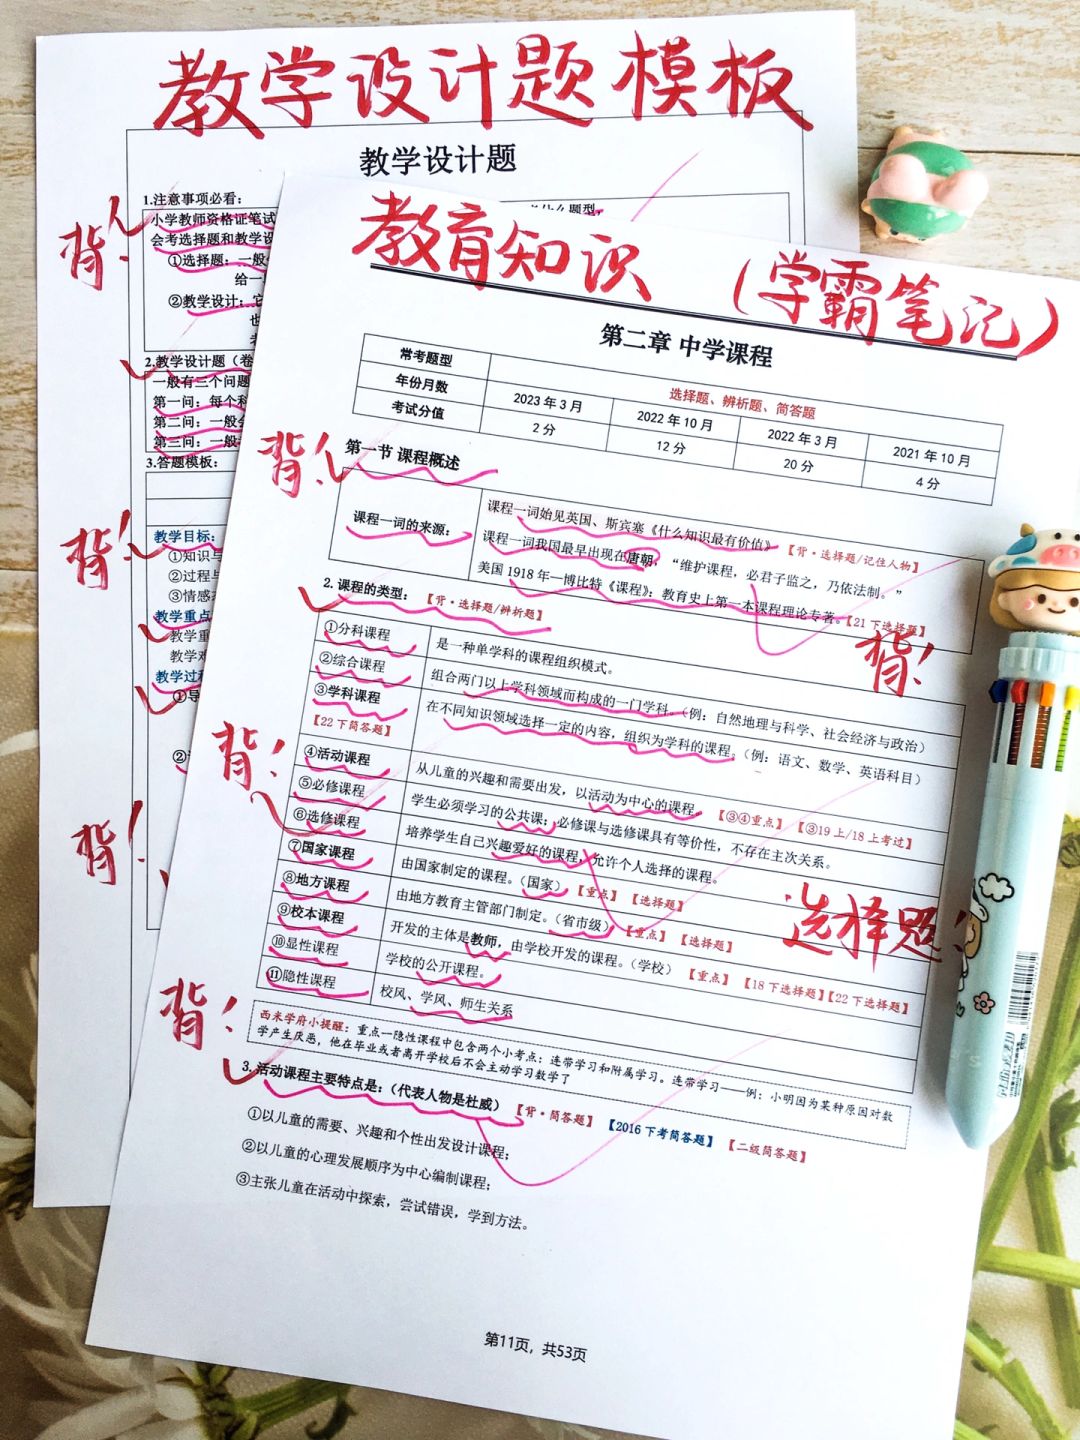 教学设计题模板
教学设计题
1.注意事项必看：
小学教师资格证笔试
会考选择题和教学设
①选择题：一般
给一
②教学设计：它
也
2.教学设计题（卷
一般有三个问题
第一问：每个科
第二问：一般会
第三问：一般
3.答题模板：
教学目标：
①知识与
②过程与
③情感态
教学重点
教学重
教学难
教学过程
①导
背！
背！
背！
教育知识（学霸笔记）
第二章 中学课程
常考题型 选择题、辨析题、简答题
年份月数 2023年3月 2022年10月 2022年3月 2021年10月
考试分值 2分 12分 20分 4分
背！
第一节 课程概述
课程一词的来源：
课程一词始见英国、斯宾塞《什么知识最有价值》【背·选择题/记住人物】
课程一词我国最早出现在唐朝，“维护课程，必君子监之，乃依法制。”
美国1918年—博比特《课程》：教育史上第一本课程理论专著。【21下选择题】
背！
2.课程的类型：【背·选择题/辨析题】
①分科课程 是一种单学科的课程组织模式。
②综合课程 组合两门以上学科领域而构成的一门学科。（例：自然地理与科学、社会经济与政治）
③学科课程 在不同知识领域选择一定的内容，组织为学科的课程。（例：语文、数学、英语科目）
【22下简答题】
背！
④活动课程 从儿童的兴趣和需要出发，以活动为中心的课程。【③④重点】【③19上/18上考过】
⑤必修课程 学生必须学习的公共课；必修课与选修课具有等价性，不存在主次关系。
⑥选修课程 培养学生自己兴趣爱好的课程，允许个人选择的课程。
⑦国家课程 由国家制定的课程。（国家）【重点】【选择题】
⑧地方课程 由地方教育主管部门制定。（省市级）【重点】【选择题】
选择题！
⑨校本课程 开发的主体是教师，由学校开发的课程。（学校）【重点】【18下选择题】【22下选择题】
⑩显性课程 学校的公开课程。
⑪隐性课程 校风、学风、师生关系
背！
西米学府小提醒：重点—隐性课程中包含两个小考点：连带学习和附属学习。连带学习——例：小明因为某种原因对数
学产生厌恶，他在毕业或者离开学校后不会主动学习数学了
3.活动课程主要特点是：（代表人物是杜威）【背·简答题】【2016下考简答题】【二级简答题】
①以儿童的需要、兴趣和个性出发设计课程；
②以儿童的心理发展顺序为中心编制课程；
③主张儿童在活动中探索，尝试错误，学到方法。
第11页，共53页